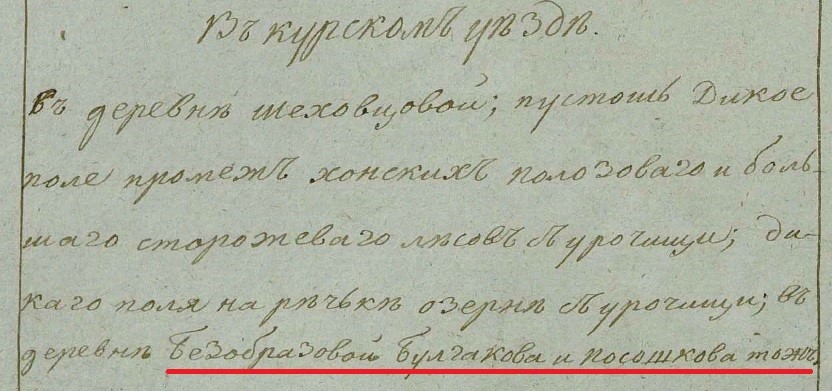 Въ курскомъ уѣздѣ.
въ деревнѣ шеховцовой; пустошь Дикое
поле промежъ хонскихъ полозоваго и боль-
шаго сторожеваго лѣсовъ съ урочищи; ди-
каго поля на рѣчькѣ озернѣ съ урочищи; въ
деревнѣ Безобразовой Булгакова и посошкова тожъ,